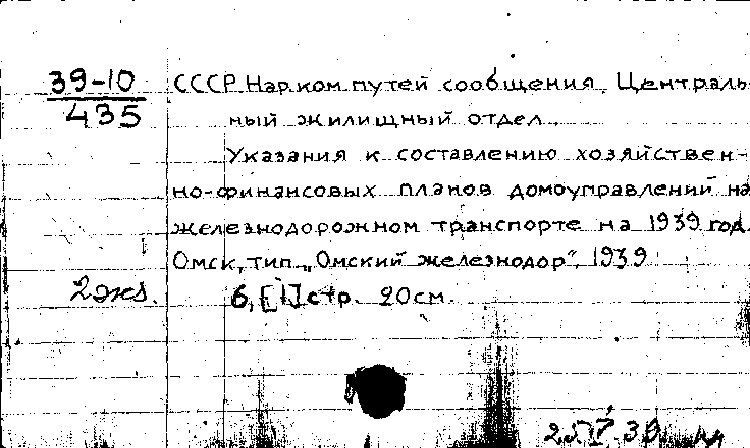 39-10
435
СССР. Нарком путей сообщения. Централь-
ный жилищный отдел.
Указания к составлению хозяйствен-
но-финансовых планов домоуправлений на
железнодорожном транспорте на 1939 год.
Омск, тип. „Омский железнодор", 1939
2 экз.
6, [1] стр. 20 см.